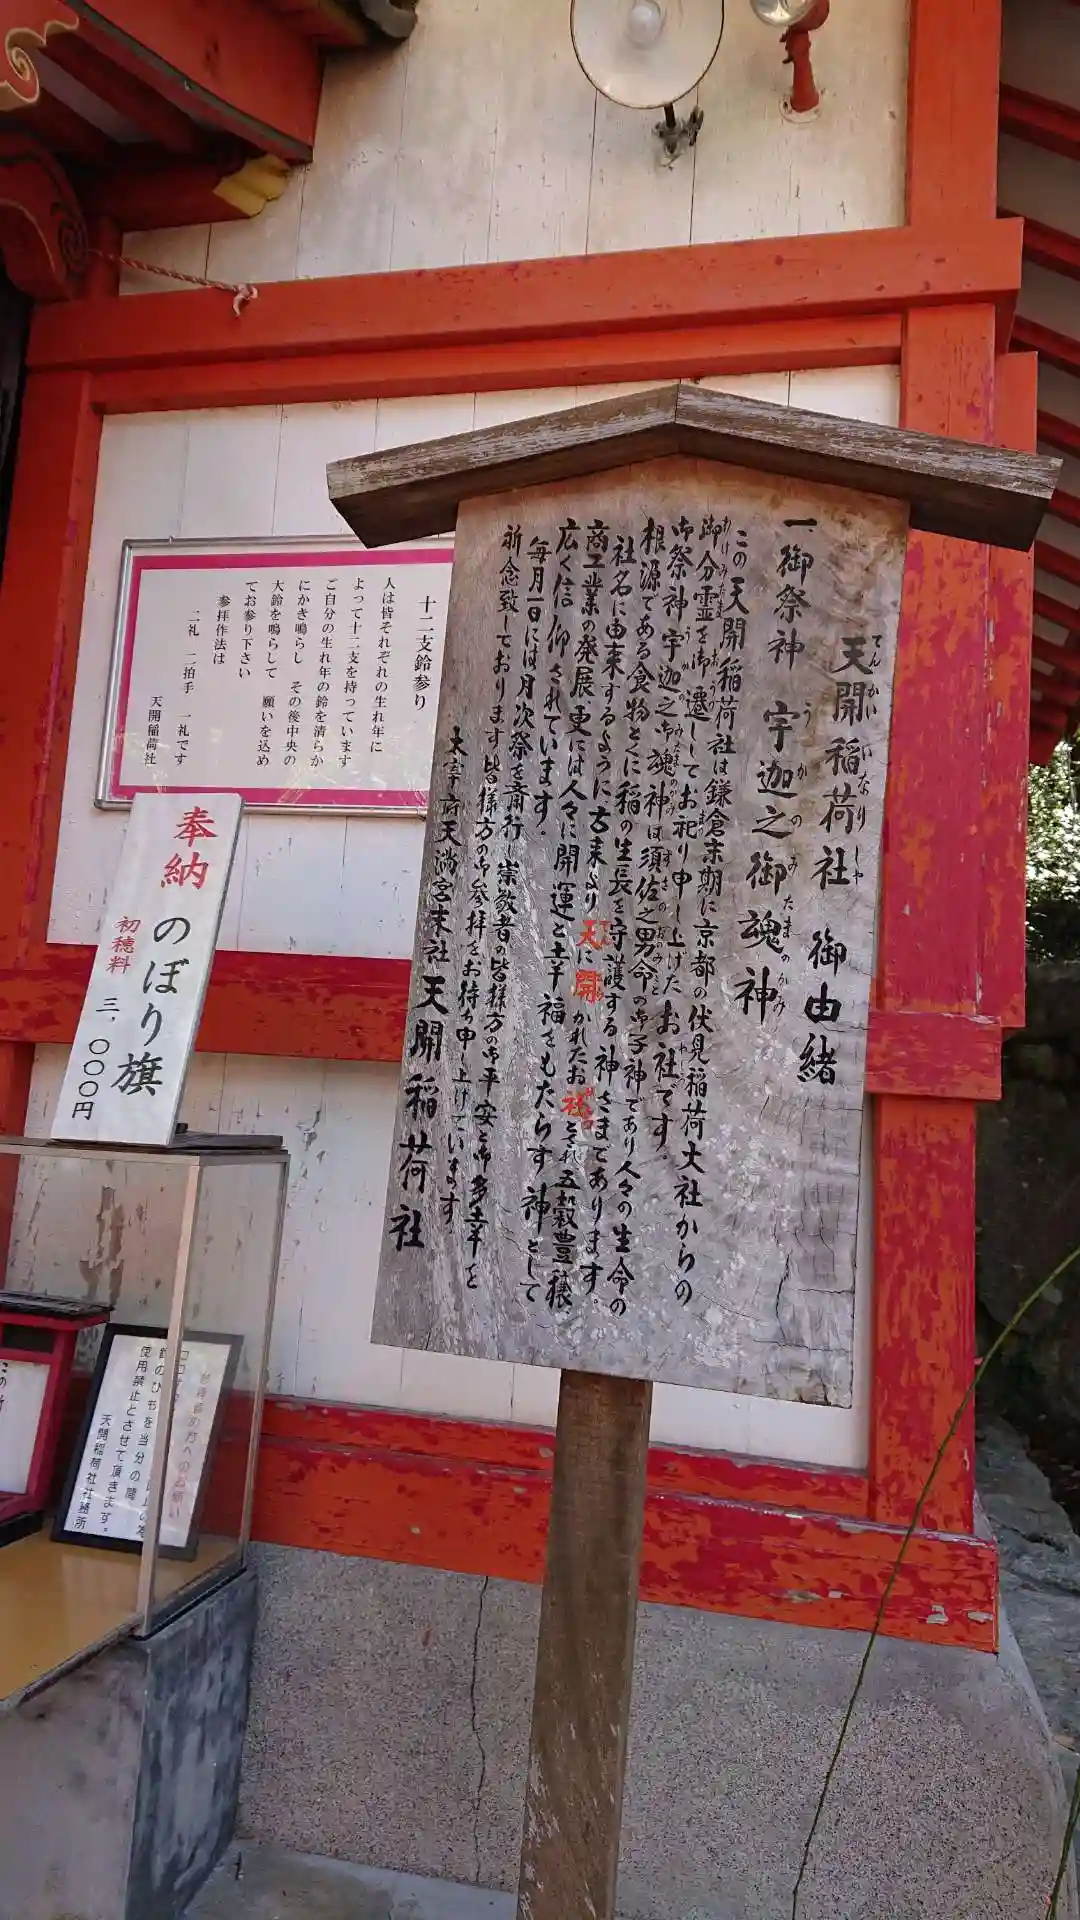 天開稲荷社 御由緒
てんかいいなりしゃ
一御祭神 宇迦之御魂神
うかのみたまのかみ
この天開稲荷社は鎌倉末期に京都の伏見稲荷大社からの
御分霊を御遷ししてお祀り申し上げたお社です。
御祭神宇迦之御魂神は須佐之男命の御子神であり人々の生命の
根源である食物とくに稲の生長を守護する神さまであります。
社名に由来するように古来より天に開かれたお社とされ五穀豊穣
商工業の発展、更には人々に開運と幸福をもたらす神として
広く信仰されています。
毎月一日には月次祭を斎行し崇敬者の皆様方の御平安と御多幸を
祈念致しております皆様方の御参拝をお待ち申し上げています
太宰府天満宮末社天開稲荷社
十二支鈴参り
人は皆それぞれの生れ年に
よって十二支を持っています
ご自分の生れ年の鈴を清らか
にかき鳴らし その後中央の
大鈴を鳴らして 願いを込め
てお参り下さい
参拝作法は
二礼 二拍手 一礼です
天開稲荷社
奉納 のぼり旗
初穂料 三、〇〇〇円
参拝者の方へのお願い
使用禁止とさせて頂きます。
天開稲荷社社務所
この所